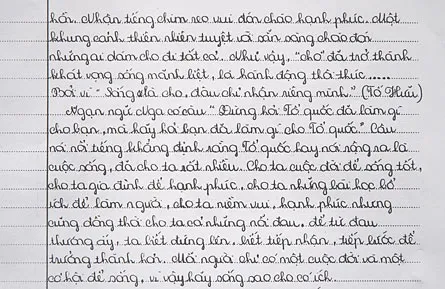 hơn. Nhận tiếng chim reo vui đón chào hạnh phúc. Một
khung cảnh thiên nhiên tuyệt vời sẵn sàng chào đón
những ai dám cho đi tất cả. Như vậy, "cho" đã trở thành
khát vọng sống mãnh liệt, là hành động thôi thúc.....
Bởi vì "Sống là cho, đâu chỉ nhận riêng mình." (Tố Hữu)
Ngạn ngữ Nga có câu "Đừng hỏi Tổ quốc đã làm gì
cho bạn, mà hãy hỏi bạn đã làm gì cho Tổ quốc." Câu
nói nổi tiếng khẳng định rằng Tổ quốc hay nói rộng ra là
cuộc sống, đã cho ta rất nhiều. Cho ta cuộc đời để sống tốt,
cho ta gia đình để hạnh phúc, cho ta những bài học bổ
ích để làm người, cho ta niềm vui, hạnh phúc nhưng
cũng đồng thời cho ta cả những nỗi đau, để từ đau
thương ấy, ta biết đứng lên, biết tiếp nhận, tiếp bước để
trưởng thành hơn. Mỗi người chỉ có một cuộc đời và một
cơ hội để sống, vì vậy hãy sống sao cho có ích.